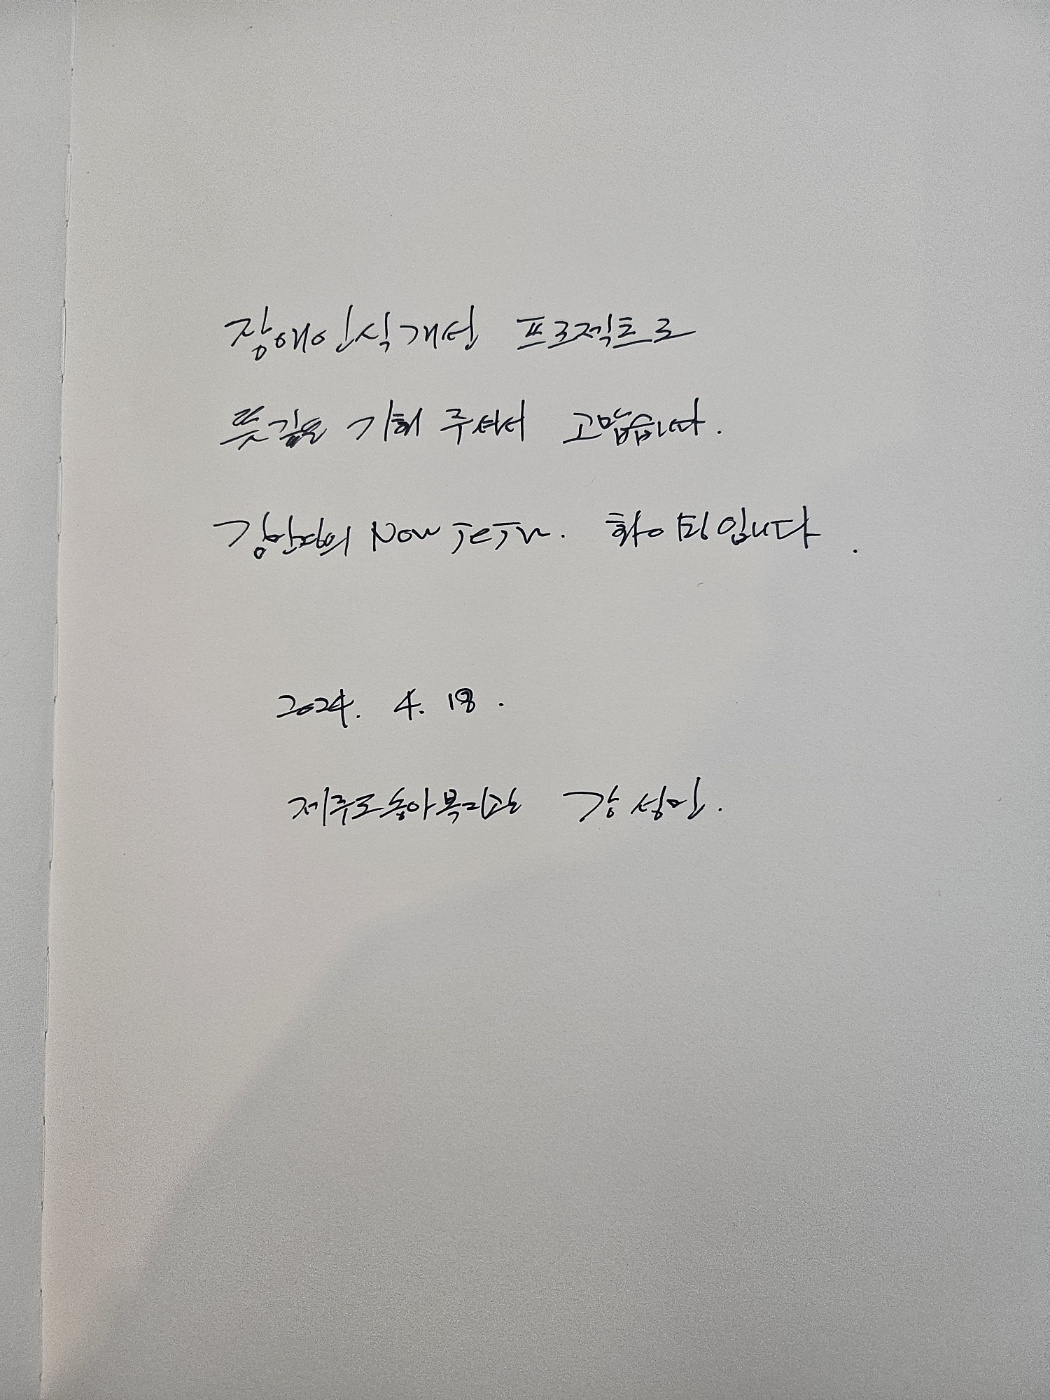 장애인식개선 프로젝트로
뜻깊은 기회 주셔서 고맙습니다.
Now JeJu. 화이팅입니다.
2024. 4. 18.
제주도농아복지관 강 성민.